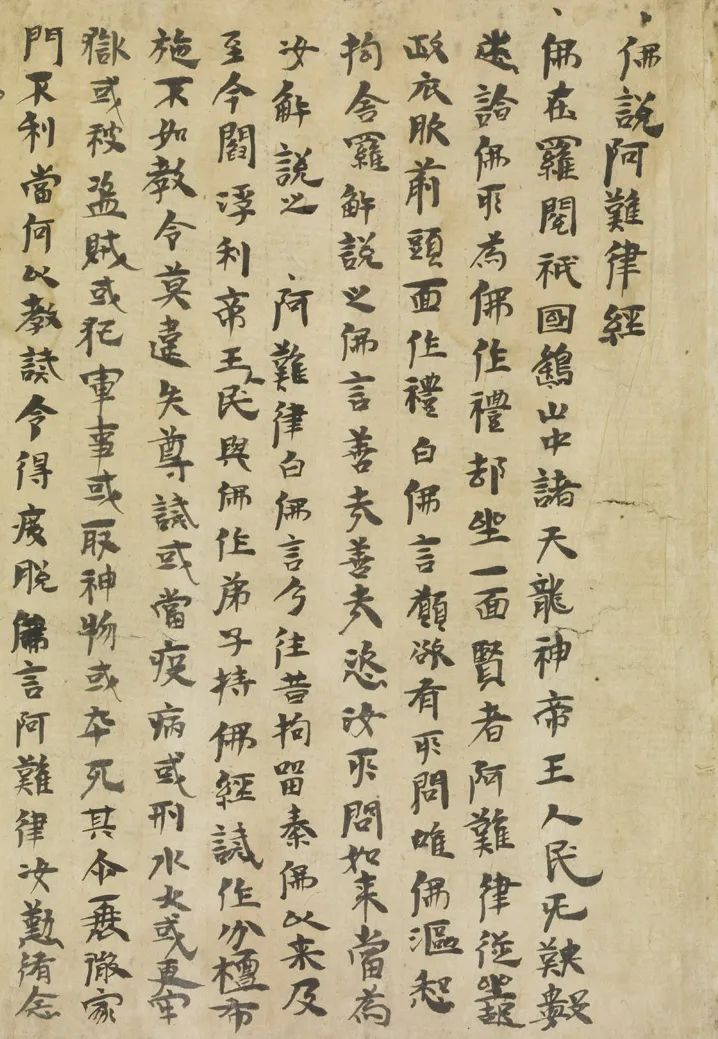 佛說阿難律經
佛在羅閱祇國鷂山中諸天龍神帝王人民无鞅數
迸詣佛所為佛作禮却坐一面賢者阿難律從坐起
政衣服前頭面作禮白佛言願欲有所問唯佛漚恕
拘舍羅解說之佛言善哉善哉恣汝所問如来當為
汝解說之 阿難律白佛言今往昔拘留秦佛以来及
至今閻浮利帝王人民與佛作弟子持佛經誡作分檀布
施不如教令莫違失尊誡或當疾病或刑水火或更牢
獄或被盜賊或犯軍事或取神物或卒死其命
門不利當何以教誡令得度脫佛言阿難律汝懃